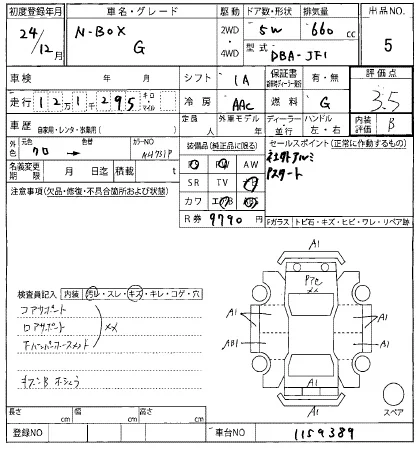 初度登録年月 車名・グレード 駆動 ドア数・形状 排気量 出品NO.
24/12月 N-BOX G 2WD 4WD 5W 660 cc 5
型式 DBA-JF1
車検 年 月 シフト IA 保証書 有・無 評価点
走行 12万1千295 キロ マイル 冷房 AAC 燃料 G 3.5
車歴 自家用・レンタ・事業用( ) 定員 人 外車モデル 年 ディーラー 並行 ハンドル 左・右 内装評価 B
外色 元色 クロ 色替 カラーNO NH731P
装備品(純正品に限る) セールスポイント(正常に作動するもの)
名義変更期限 月 日迄 積載 t
AW 社外アルミ
SR TV Pスタート
注意事項(欠品・修復・不具合箇所および状態)
カワ エアB
R券 9790 円
Fガラス トビ石・キズ・ヒビ・ワレ・リペア跡
A1
検査員記入 内装 汚レ・スレ・キズ・キレ・コゲ・穴
A1 A1
AB1 A1
A1
A1
スペア
長さ cm 幅 cm 高さ cm
登録NO 車台NO 1159389